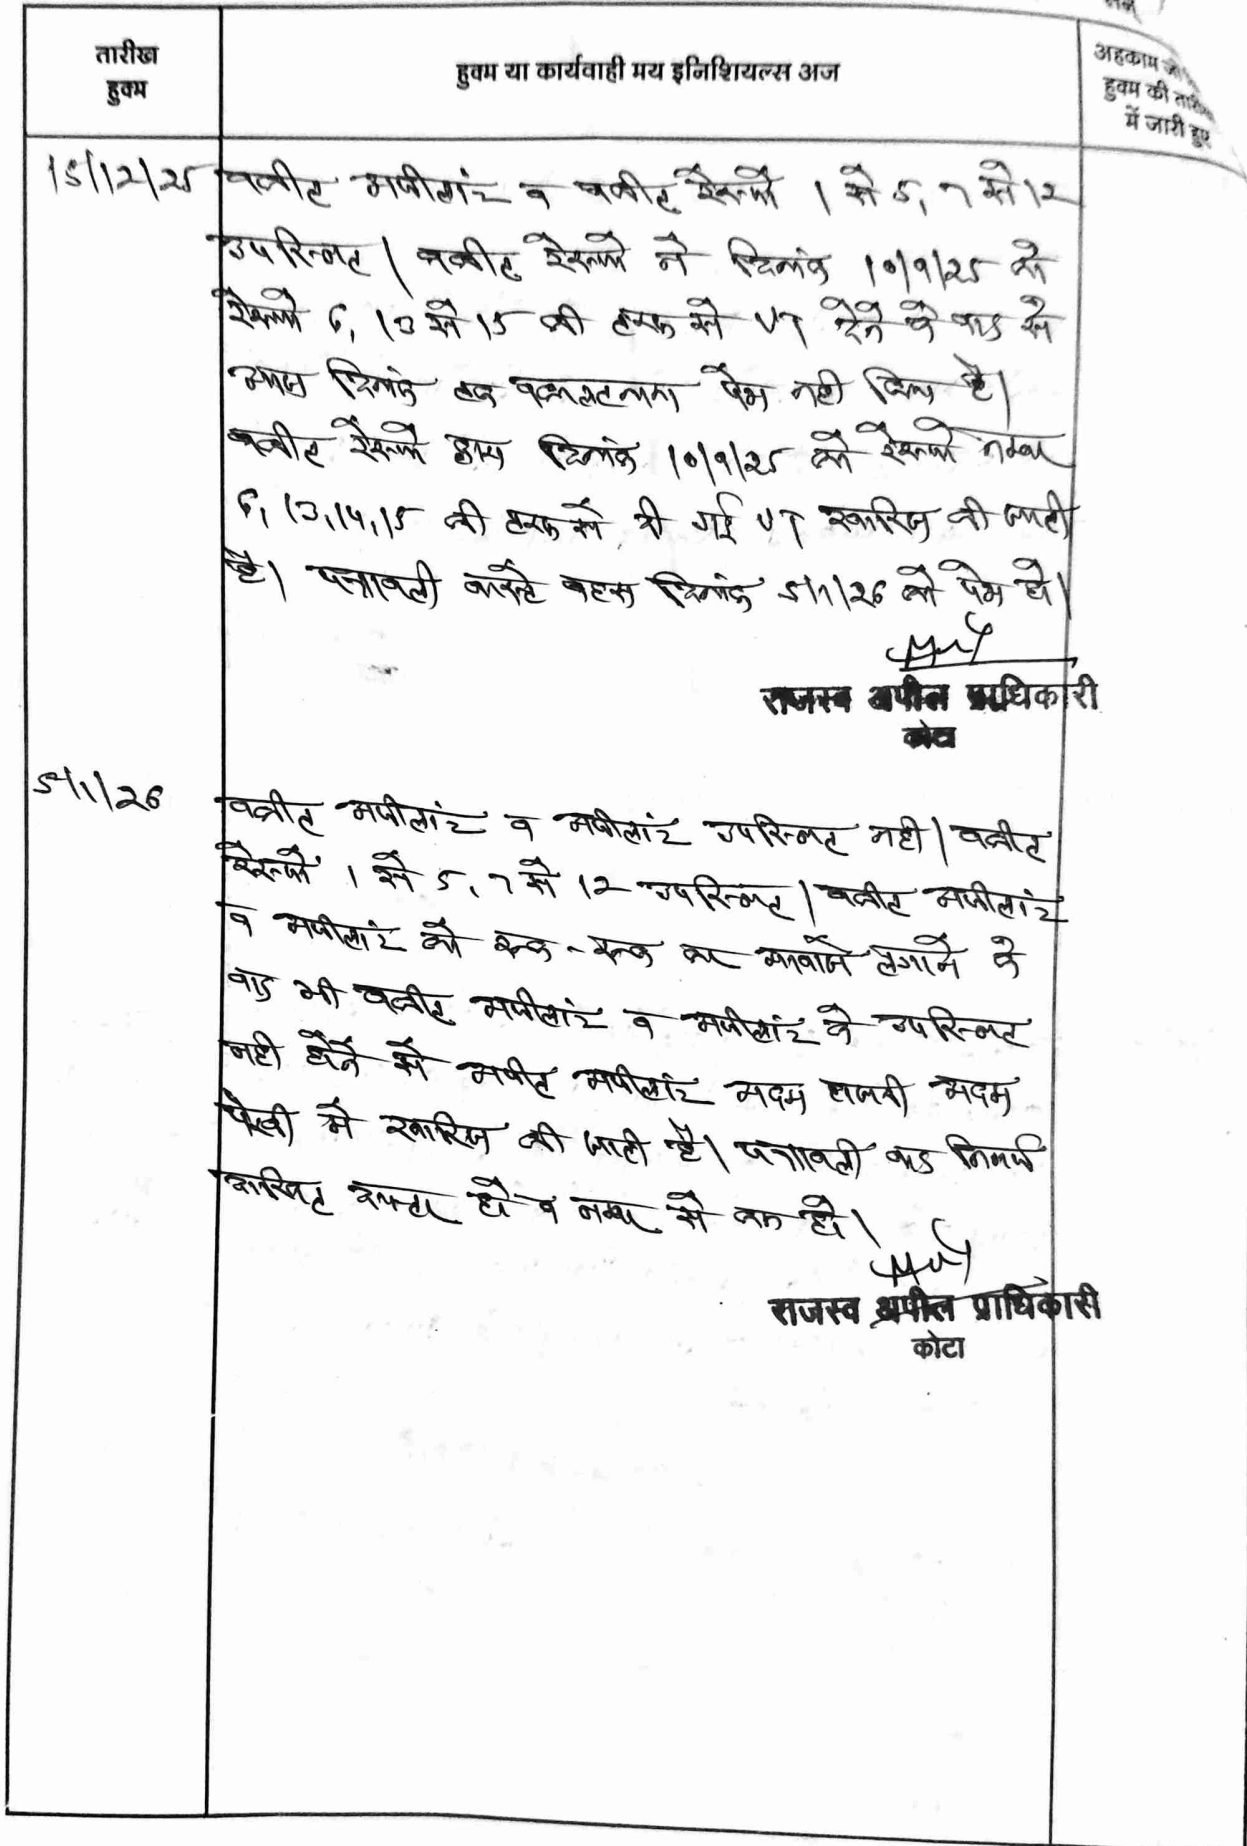 तारीख
हुक्म
हुक्म या कार्यवाही मय इनिशियल्स अज
अहकाम जो
हुक्म की तारीख
में जारी हुए
15/12/25 वकील अपीलांट व वकील रेस्पो 1 से 5, 7 से 12
उपस्थित। वकील रेस्पो ने दिनांक 10/9/25 को
रेस्पो 6, 13 से 15 की तरफ से UT देने के बाद से
आज दिनांक तक वकालतनामा पेश नही किया है।
वकील रेस्पो द्वारा दिनांक 10/9/25 को रेस्पो नम्बर
6, 13, 14, 15 की तरफ से दी गई UT खारिज की जाती
है। पत्रावली वास्ते बहस दिनांक 5/1/26 को पेश हो।
राजस्व अपील प्राधिकारी
कोटा
5/1/26
वकील अपीलांट व अपीलांट उपस्थित नही। वकील
रेस्पो 1 से 5, 7 से 12 उपस्थित। वकील अपीलांट
व अपीलांट को रूक-रूक कर आवाजे लगाने के
बाद भी वकील अपीलांट व अपीलांट के उपस्थित
नही होने से अपील अपीलांट अदम हाजरी अदम
पेरवी मे खारिज की जाती है। पत्रावली बाद निर्णय
दाखिल दफ्तर हो व नम्बर से कम हो।
राजस्व अपील प्राधिकारी
कोटा